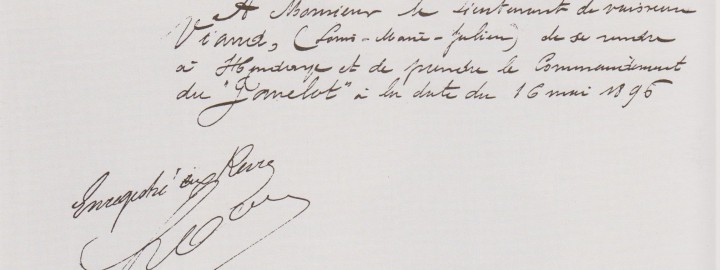 A Monsieur le Lieutenant de vaisseau
Viaud, (Louis-Marie-Julien) de se rendre
à Hendaye et de prendre le Commandement
du "Javelot" à la date du 16 mai 1896
Enregistré au